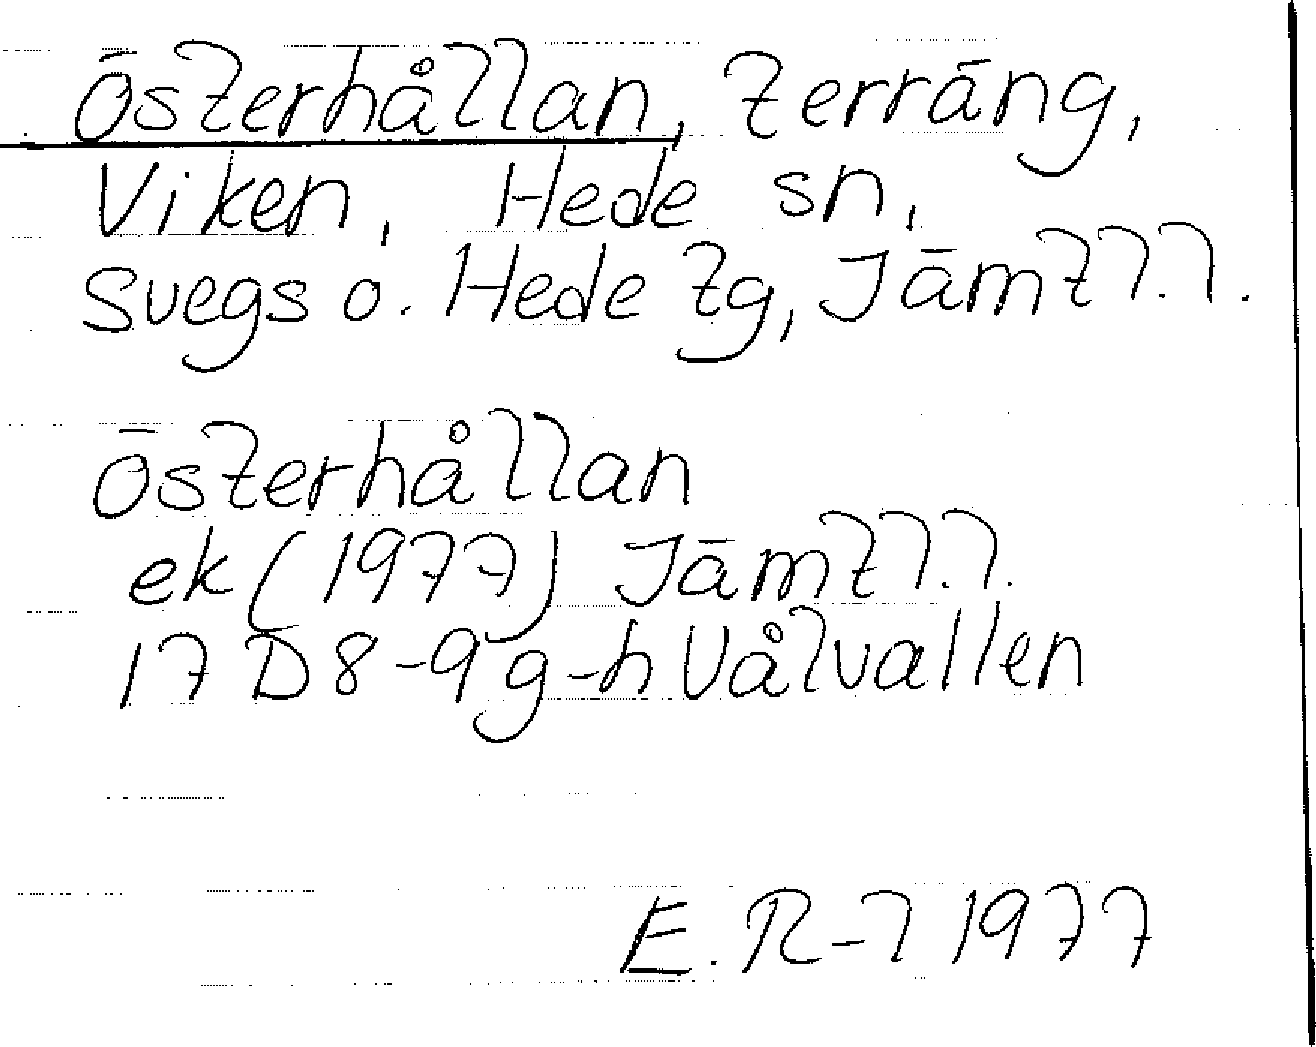 Österhållan, terräng,
Viken, Hede sn,
Svegs o. Hede tg, Jämtl.l.
Österhållan
ek (1977) Jämtl.l.
17 D 8-9 g-h Vålvallen
E. R-l 1977